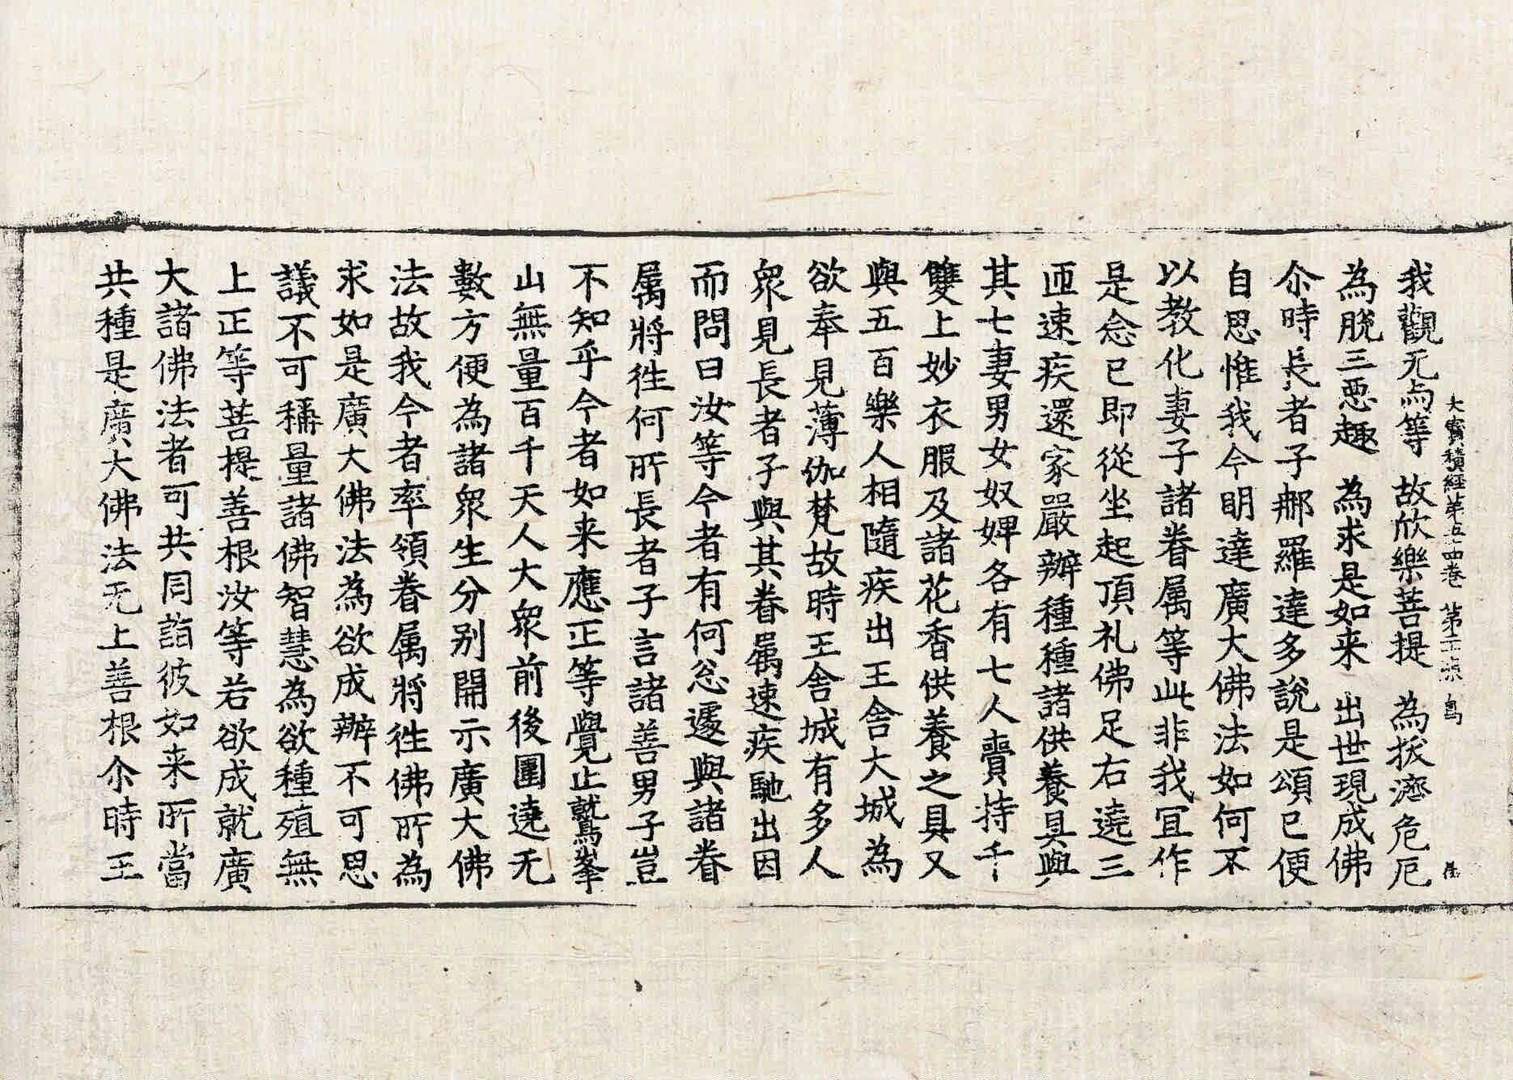 大寶積經第五十四卷 第 張 鳥
我觀无与等 故欣樂菩提 為拔濟危厄
為脫三惡趣 為求是如来 出世現成佛
尒時長者子那羅達多說是頌已便
自思惟我今明達廣大佛法如何不
以教化妻子諸眷属等此非我冝作
是念已即從坐起頂礼佛足右遶三
匝速疾還家嚴辦種種諸供養具與
其七妻男女奴婢各有七人賷持千
雙上妙衣服及諸花香供養之具又
與五百樂人相隨疾出王舍大城為
欲奉見薄伽梵故時王舍城有多人
衆見長者子與其眷属速疾馳出因
而問曰汝等今者有何忩遽與諸眷
属將徃何所長者子言諸善男子豈
不知乎今者如来應正等覺止鷲峯
山無量百千天人大衆前後圍遶无
數方便為諸衆生分別開示廣大佛
法故我今者率領眷属將徃佛所為
求如是廣大佛法為欲成辦不可思
議不可稱量諸佛智慧為欲種殖無
上正等菩提善根汝等若欲成就廣
大諸佛法者可共同詣彼如来所當
共種是廣大佛法无上善根尒時王